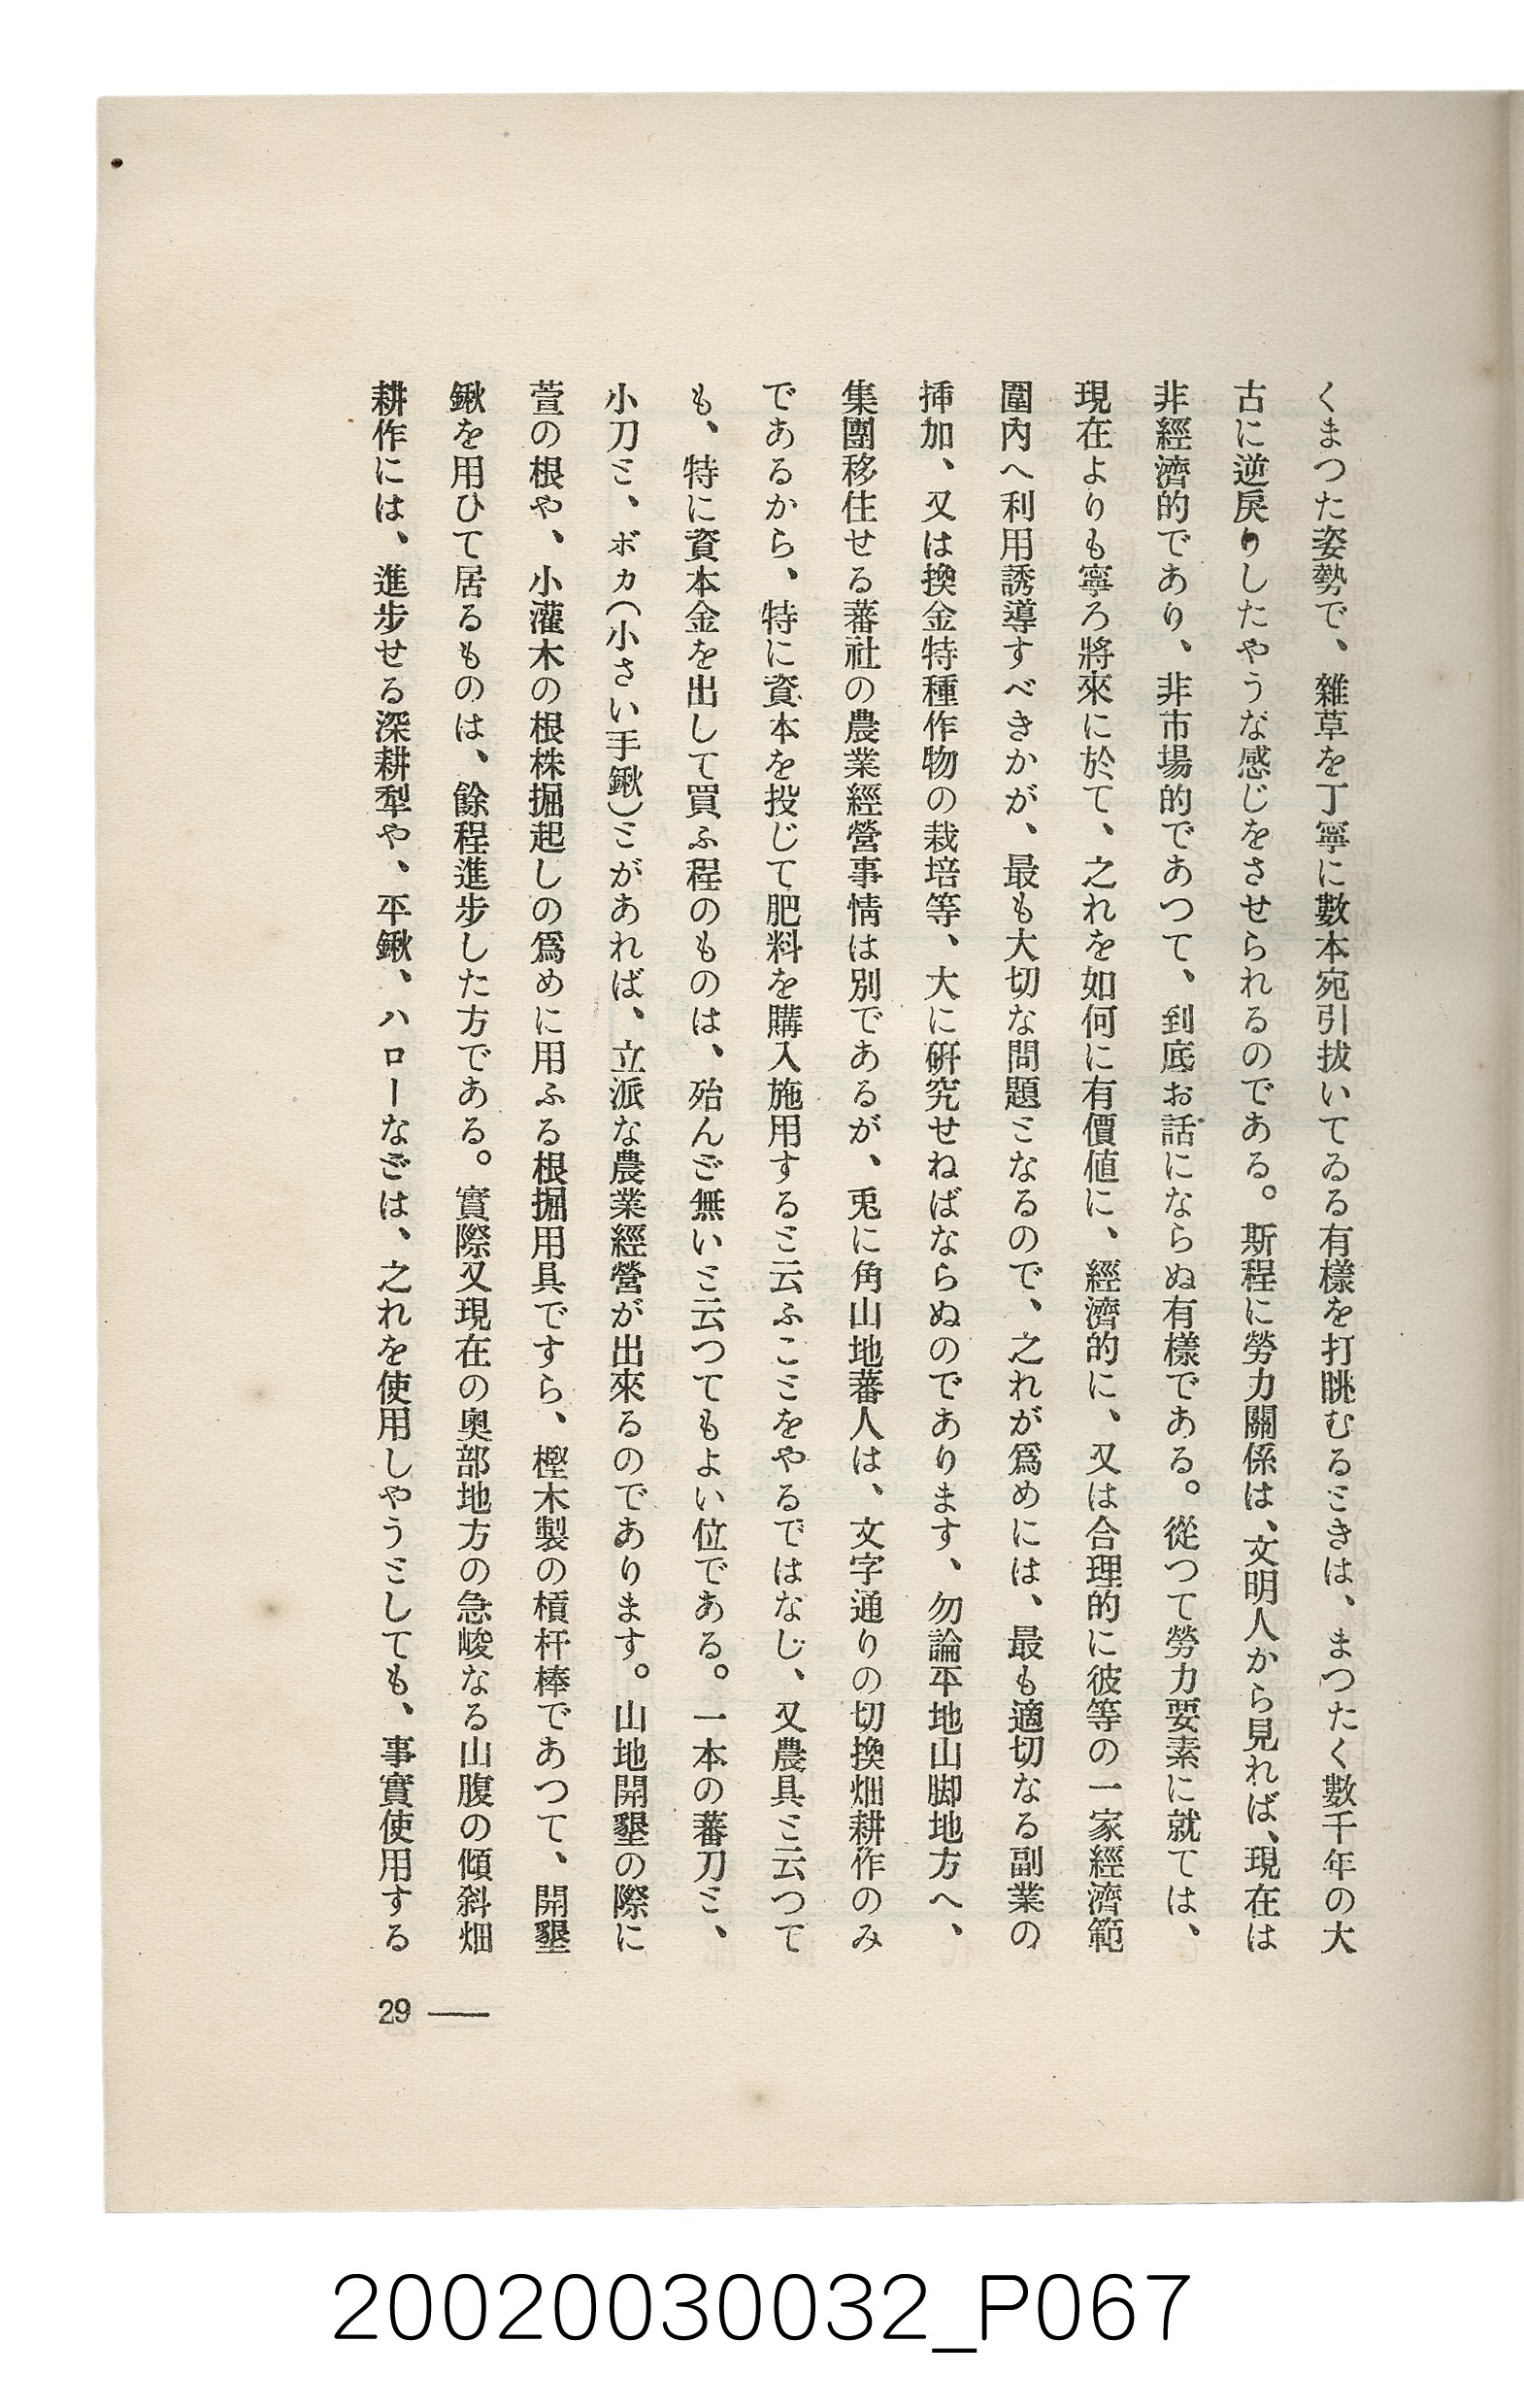 くまつた姿勢で、雜草を丁寧に數本宛引拔いてゐる有樣を打眺むるミきは、まつたく數千年の大
古に逆戾りしたやうな感じをさせられるのである。斯程に勞力關係は、文明人から見れば、現在は
非經濟的であり、非市場的であつて、到底お話にならぬ有樣である。從つて勞力要素に就ては、
現在よりも寧ろ將來に於て、之れを如何に有價値に、經濟的に、又は合理的に彼等の一家經濟範
圍內へ利用誘導すべきかが、最も大切な問題ミなるので、之れが爲めには、最も適切なる副業の
揷加、又は換金特種作物の栽培等、大に硏究せねばならぬのであります、勿論平地山脚地方へ、
集團移住せる蕃社の農業經營事情は別であるが、兎に角山地蕃人は、文字通りの切換畑耕作のみ
であるから、特に資本を投じて肥料を購入施用するミ云ふこミをやるではなじ、又農具ミ云つて
も、特に資本金を出して買ふ程のものは、殆んご無いミ云つてもよい位である。一本の蕃刀ミ、
小刀ミ、ボカ(小さい手鍬)ミがあれば、立派な農業經營が出來るのであります。山地開墾の際に
萱の根や、小灌木の根株掘起しの爲めに用ふる根掘用具ですら、樫木製の槓杆棒であつて、開墾
鍬を用ひて居るものは、餘程進步した方である。實際又現在の奧部地方の急峻なる山腹の傾斜畑
耕作には、進步せる深耕犁や、平鍬、ハローなごは、之れを使用しやうミしても、事實使用する
29 ——
20020030032_P067